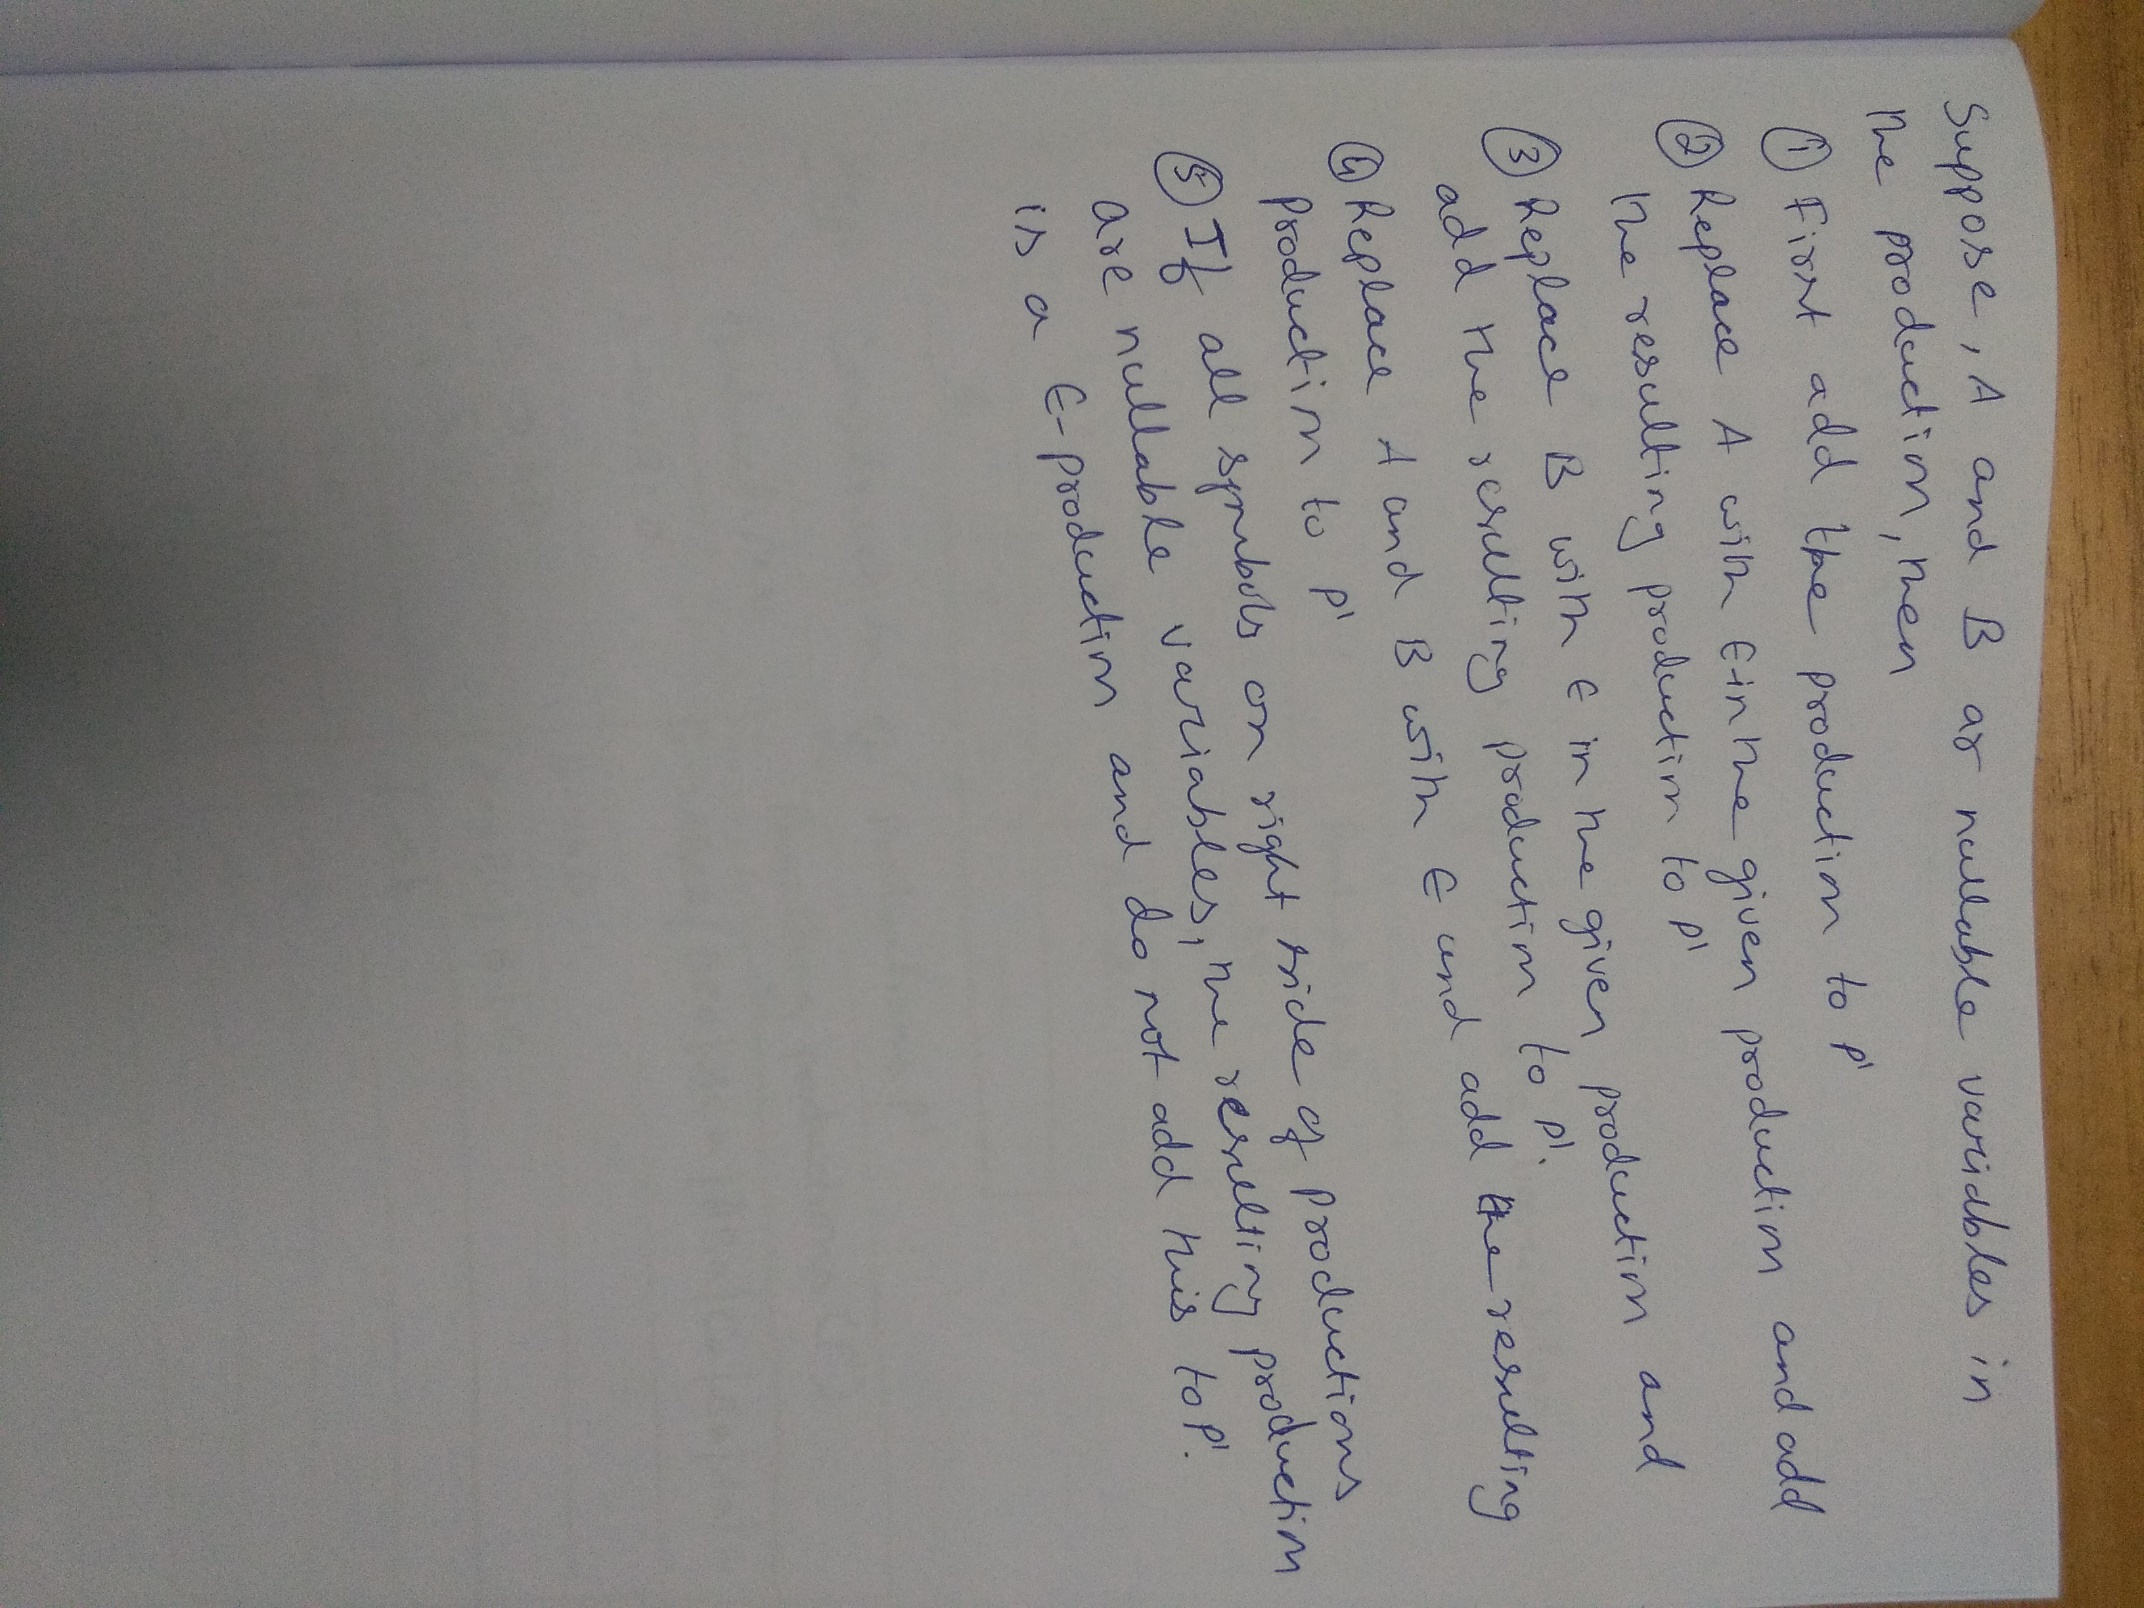 Suppose, A and B ar nullable variables in
the production, then
① First add the production to P'
② Replace A with ϵ in the given production and add
the resulting production to P'
③ Replace B with ϵ in the given production and
add the resulting production to P'.
④ Replace A and B with ϵ and add the resulting
production to P'
⑤ If all symbols on right side of productions
are nullable variables, the resulting production
is a ϵ-production and do not add this to P'.